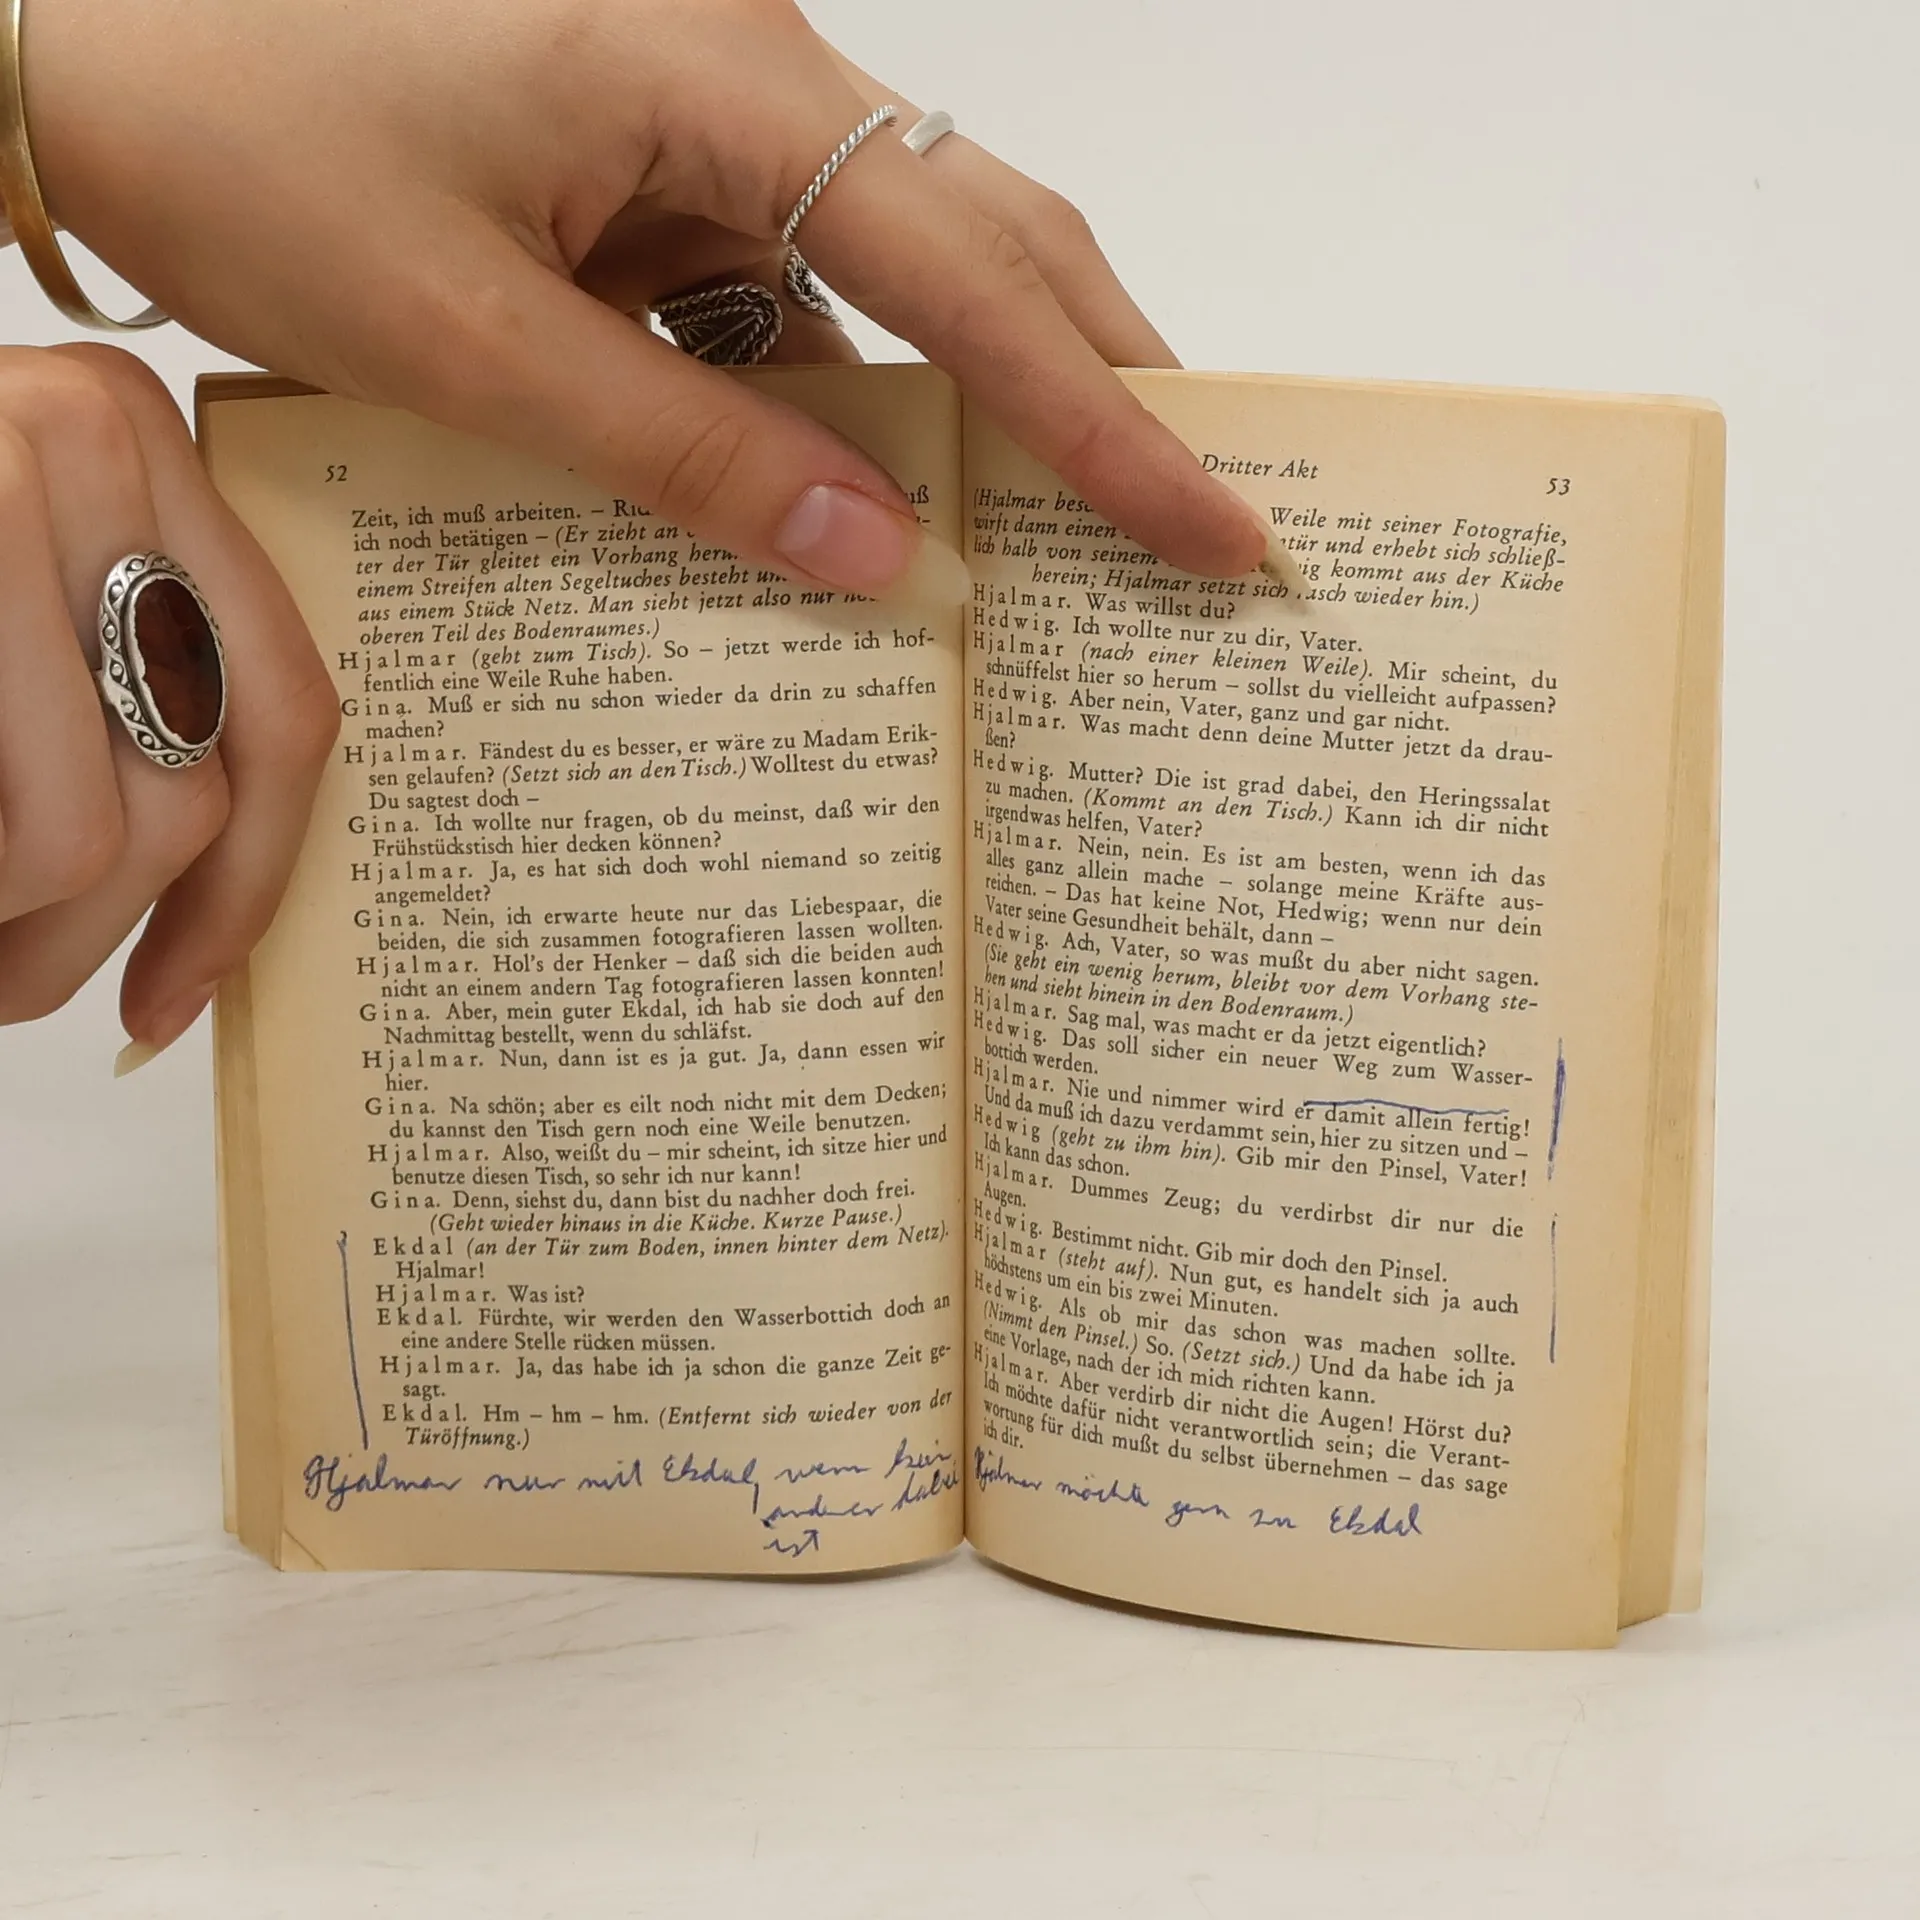 52
Zeit, ich muß arbeiten. –
ich noch betätigen – (Er zieht an
ter der Tür gleitet ein Vorhang
einem Streifen alten Segeltuches besteht
aus einem Stück Netz. Man sieht jetzt also nur
oberen Teil des Bodenraumes.)
Hjalmar (geht zum Tisch). So – jetzt werde ich hof-
fentlich eine Weile Ruhe haben.
Gina. Muß er sich nu schon wieder da drin zu schaffen
machen?
Hjalmar. Fändest du es besser, er wäre zu Madam Erik-
sen gelaufen? (Setzt sich an den Tisch.) Wolltest du etwas?
Du sagtest doch –
Gina. Ich wollte nur fragen, ob du meinst, daß wir den
Frühstückstisch hier decken können?
Hjalmar. Ja, es hat sich doch wohl niemand so zeitig
angemeldet?
Gina. Nein, ich erwarte heute nur das Liebespaar, die
beiden, die sich zusammen fotografieren lassen wollten.
Hjalmar. Hol's der Henker – daß sich die beiden auch
nicht an einem andern Tag fotografieren lassen konnten!
Gina. Aber, mein guter Ekdal, ich hab sie doch auf den
Nachmittag bestellt, wenn du schläfst.
Hjalmar. Nun, dann ist es ja gut. Ja, dann essen wir
hier.
Gina. Na schön; aber es eilt noch nicht mit dem Decken;
du kannst den Tisch gern noch eine Weile benutzen.
Hjalmar. Also, weißt du – mir scheint, ich sitze hier und
benutze diesen Tisch, so sehr ich nur kann!
Gina. Denn, siehst du, dann bist du nachher doch frei.
(Geht wieder hinaus in die Küche. Kurze Pause.)
Ekdal (an der Tür zum Boden, innen hinter dem Netz).
Hjalmar!
Hjalmar. Was ist?
Ekdal. Fürchte, wir werden den Wasserbottich doch an
eine andere Stelle rücken müssen.
Hjalmar. Ja, das habe ich ja schon die ganze Zeit ge-
sagt.
Ekdal. Hm – hm – hm. (Entfernt sich wieder von der
Türöffnung.)
Hjalmar nur mit Ekdal, wenn kein
anderer dabei
ist
Dritter Akt 53
(Hjalmar Weile mit seiner Fotografie,
wirft dann einen und erhebt sich schließ-
lich halb von seinem kommt aus der Küche
herein; Hjalmar setzt sich rasch wieder hin.)
Hjalmar. Was willst du?
Hedwig. Ich wollte nur zu dir, Vater.
Hjalmar (nach einer kleinen Weile). Mir scheint, du
schnüffelst hier so herum – sollst du vielleicht aufpassen?
Hedwig. Aber nein, Vater, ganz und gar nicht.
Hjalmar. Was macht denn deine Mutter jetzt da drau-
ßen?
Hedwig. Mutter? Die ist grad dabei, den Heringssalat
zu machen. (Kommt an den Tisch.) Kann ich dir nicht
irgendwas helfen, Vater?
Hjalmar. Nein, nein. Es ist am besten, wenn ich das
alles ganz allein mache – solange meine Kräfte aus-
reichen. – Das hat keine Not, Hedwig; wenn nur dein
Vater seine Gesundheit behält, dann –
Hedwig. Ach, Vater, so was mußt du aber nicht sagen.
(Sie geht ein wenig herum, bleibt vor dem Vorhang ste-
hen und sieht hinein in den Bodenraum.)
Hjalmar. Sag mal, was macht er da jetzt eigentlich?
Hedwig. Das soll sicher ein neuer Weg zum Wasser-
bottich werden.
Hjalmar. Nie und nimmer wird er damit allein fertig!
Und da muß ich dazu verdammt sein, hier zu sitzen und –
Hedwig (geht zu ihm hin). Gib mir den Pinsel, Vater!
Ich kann das schon.
Hjalmar. Dummes Zeug; du verdirbst dir nur die
Augen.
Hedwig. Bestimmt nicht. Gib mir doch den Pinsel.
Hjalmar (steht auf). Nun gut, es handelt sich ja auch
höchstens um ein bis zwei Minuten.
Hedwig. Als ob mir das schon was machen sollte.
(Nimmt den Pinsel.) So. (Setzt sich.) Und da habe ich ja
eine Vorlage, nach der ich mich richten kann.
Hjalmar. Aber verdirb dir nicht die Augen! Hörst du?
Ich möchte dafür nicht verantwortlich sein; die Verant-
wortung für dich mußt du selbst übernehmen – das sage
ich dir.
Hjalmar möchte gern zu Ekdal